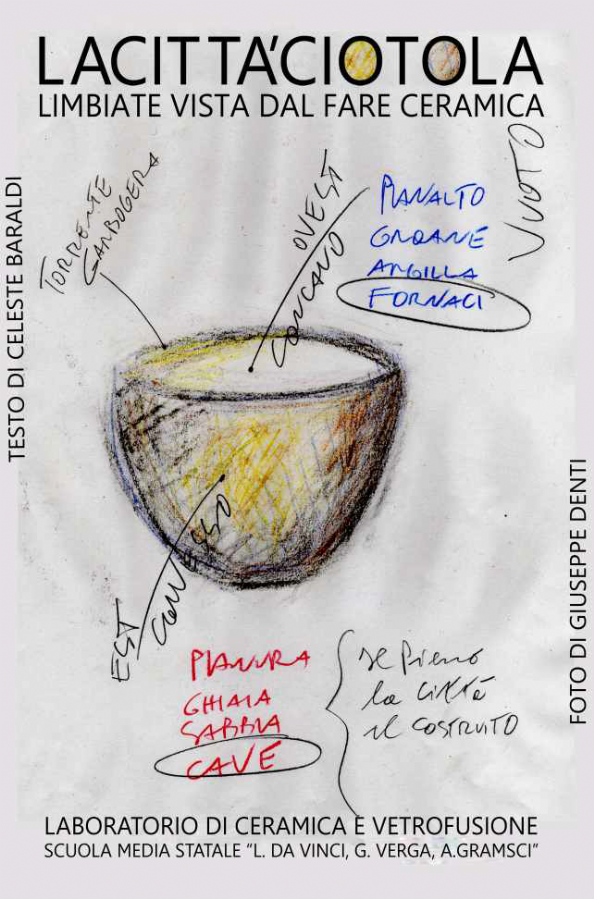 LACITTA'CIOTOLA
LIMBIATE VISTA DAL FARE CERAMICA
TESTO DI CELESTE BARALDI
TORRENTE
GARBOGERA
OVEST
CONCAVO
PIANALTO
GROANE
ARGILLA
FORNACI
VUOTO
EST
CONVESSO
PIANURA
GHIAIA
SABBIA
CAVE
il Pieno
la città
il COSTRUITO
FOTO DI GIUSEPPE DENTI
LABORATORIO DI CERAMICA E VETROFUSIONE
SCUOLA MEDIA STATALE "L. DA VINCI, G. VERGA, A.GRAMSCI"